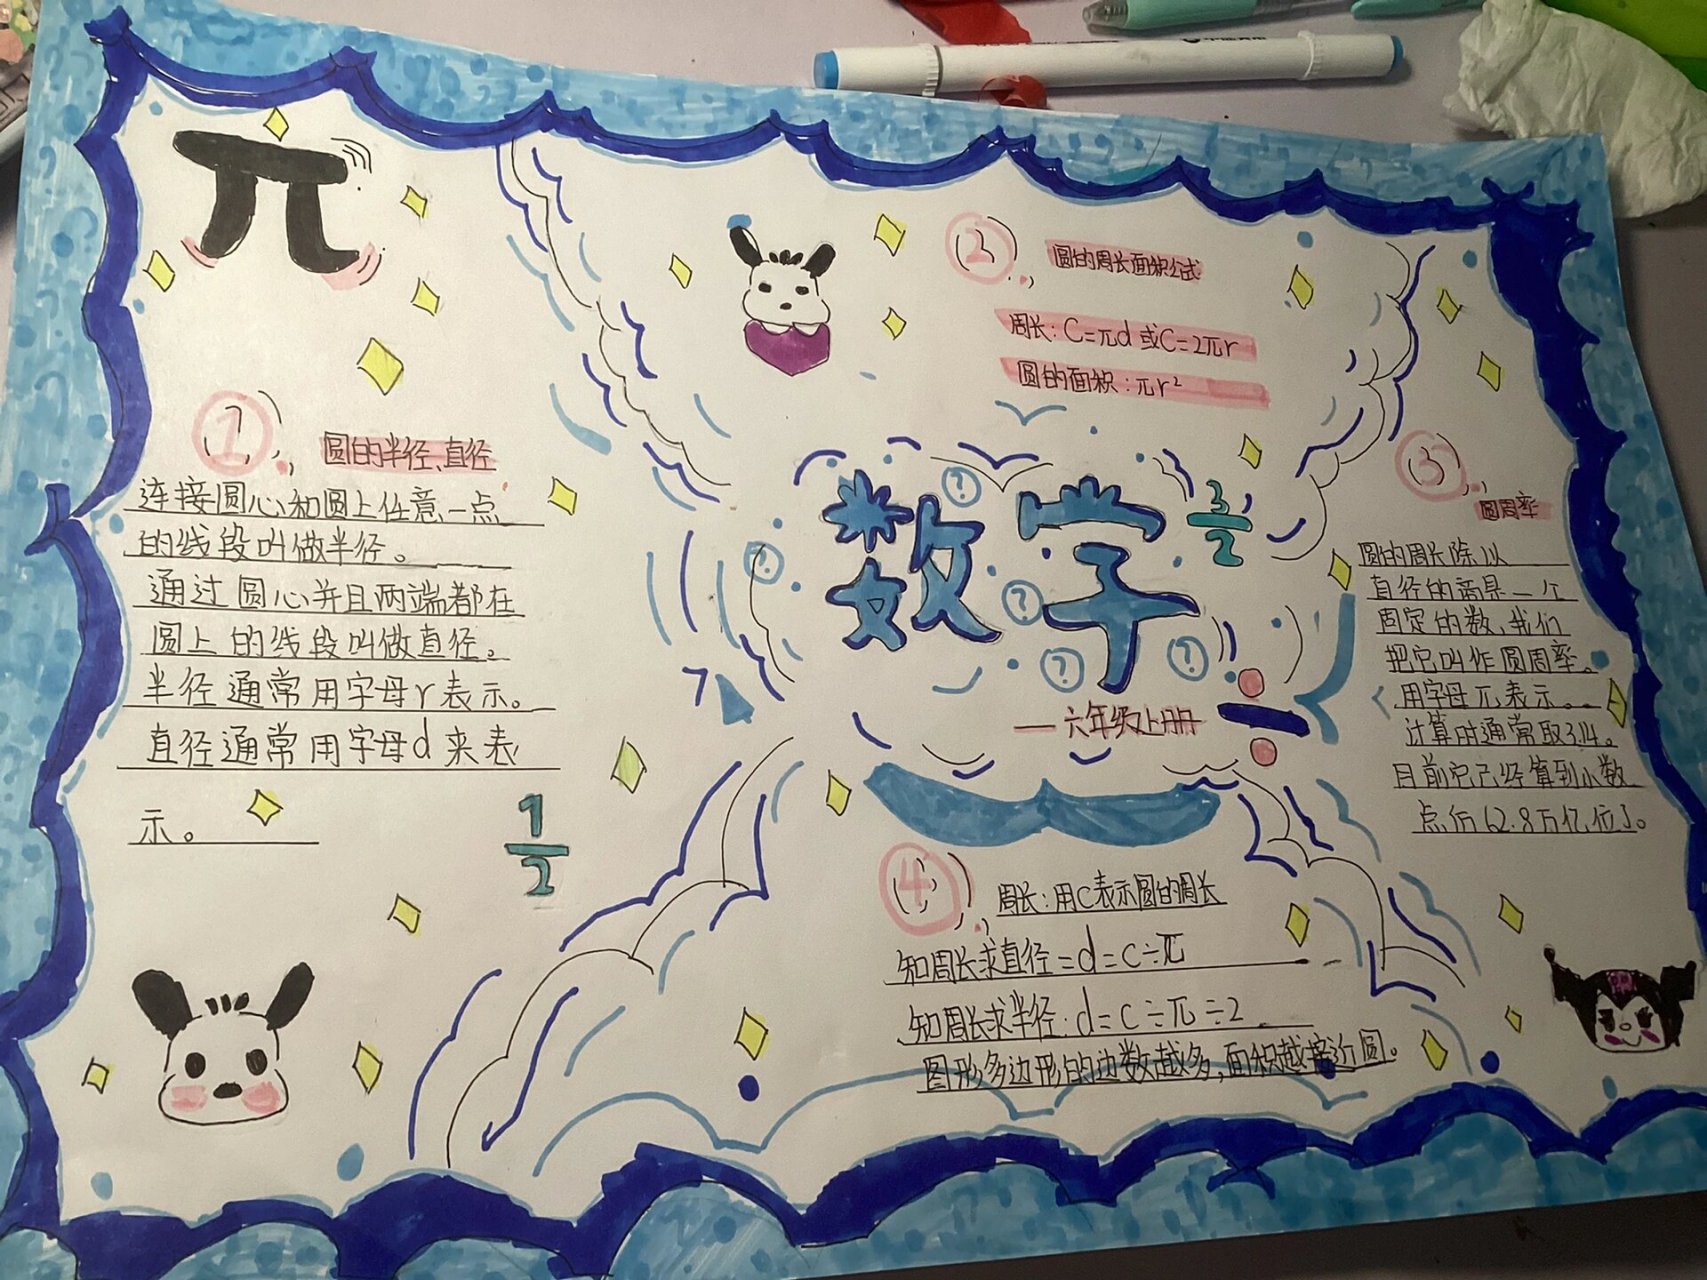 π
①.
圆的半径、直径
连接圆心和圆上任意一点
的线段叫做半径。
通过圆心并且两端都在
圆上的线段叫做直径。
半径通常用字母r表示。
直径通常用字母d来表
示。
1
2
②.
圆的周长面积公式
周长:C=πd或C=2πr
圆的面积:πr²
数字
3
2
?
?
?
?
?
÷
—六年级上册
③.
圆周率
圆的周长除以
直径的商是一个
固定的数,我们
把它叫作圆周率。
用字母π表示。
计算时通常取3.14。
目前它已经算到小数
点后62.8万亿位了。
④.
周长:用C表示圆的周长
知周长求直径=d=C÷π
知周长求半径:d=C÷π÷2
图形多边形的边数越多,面积越接近圆。